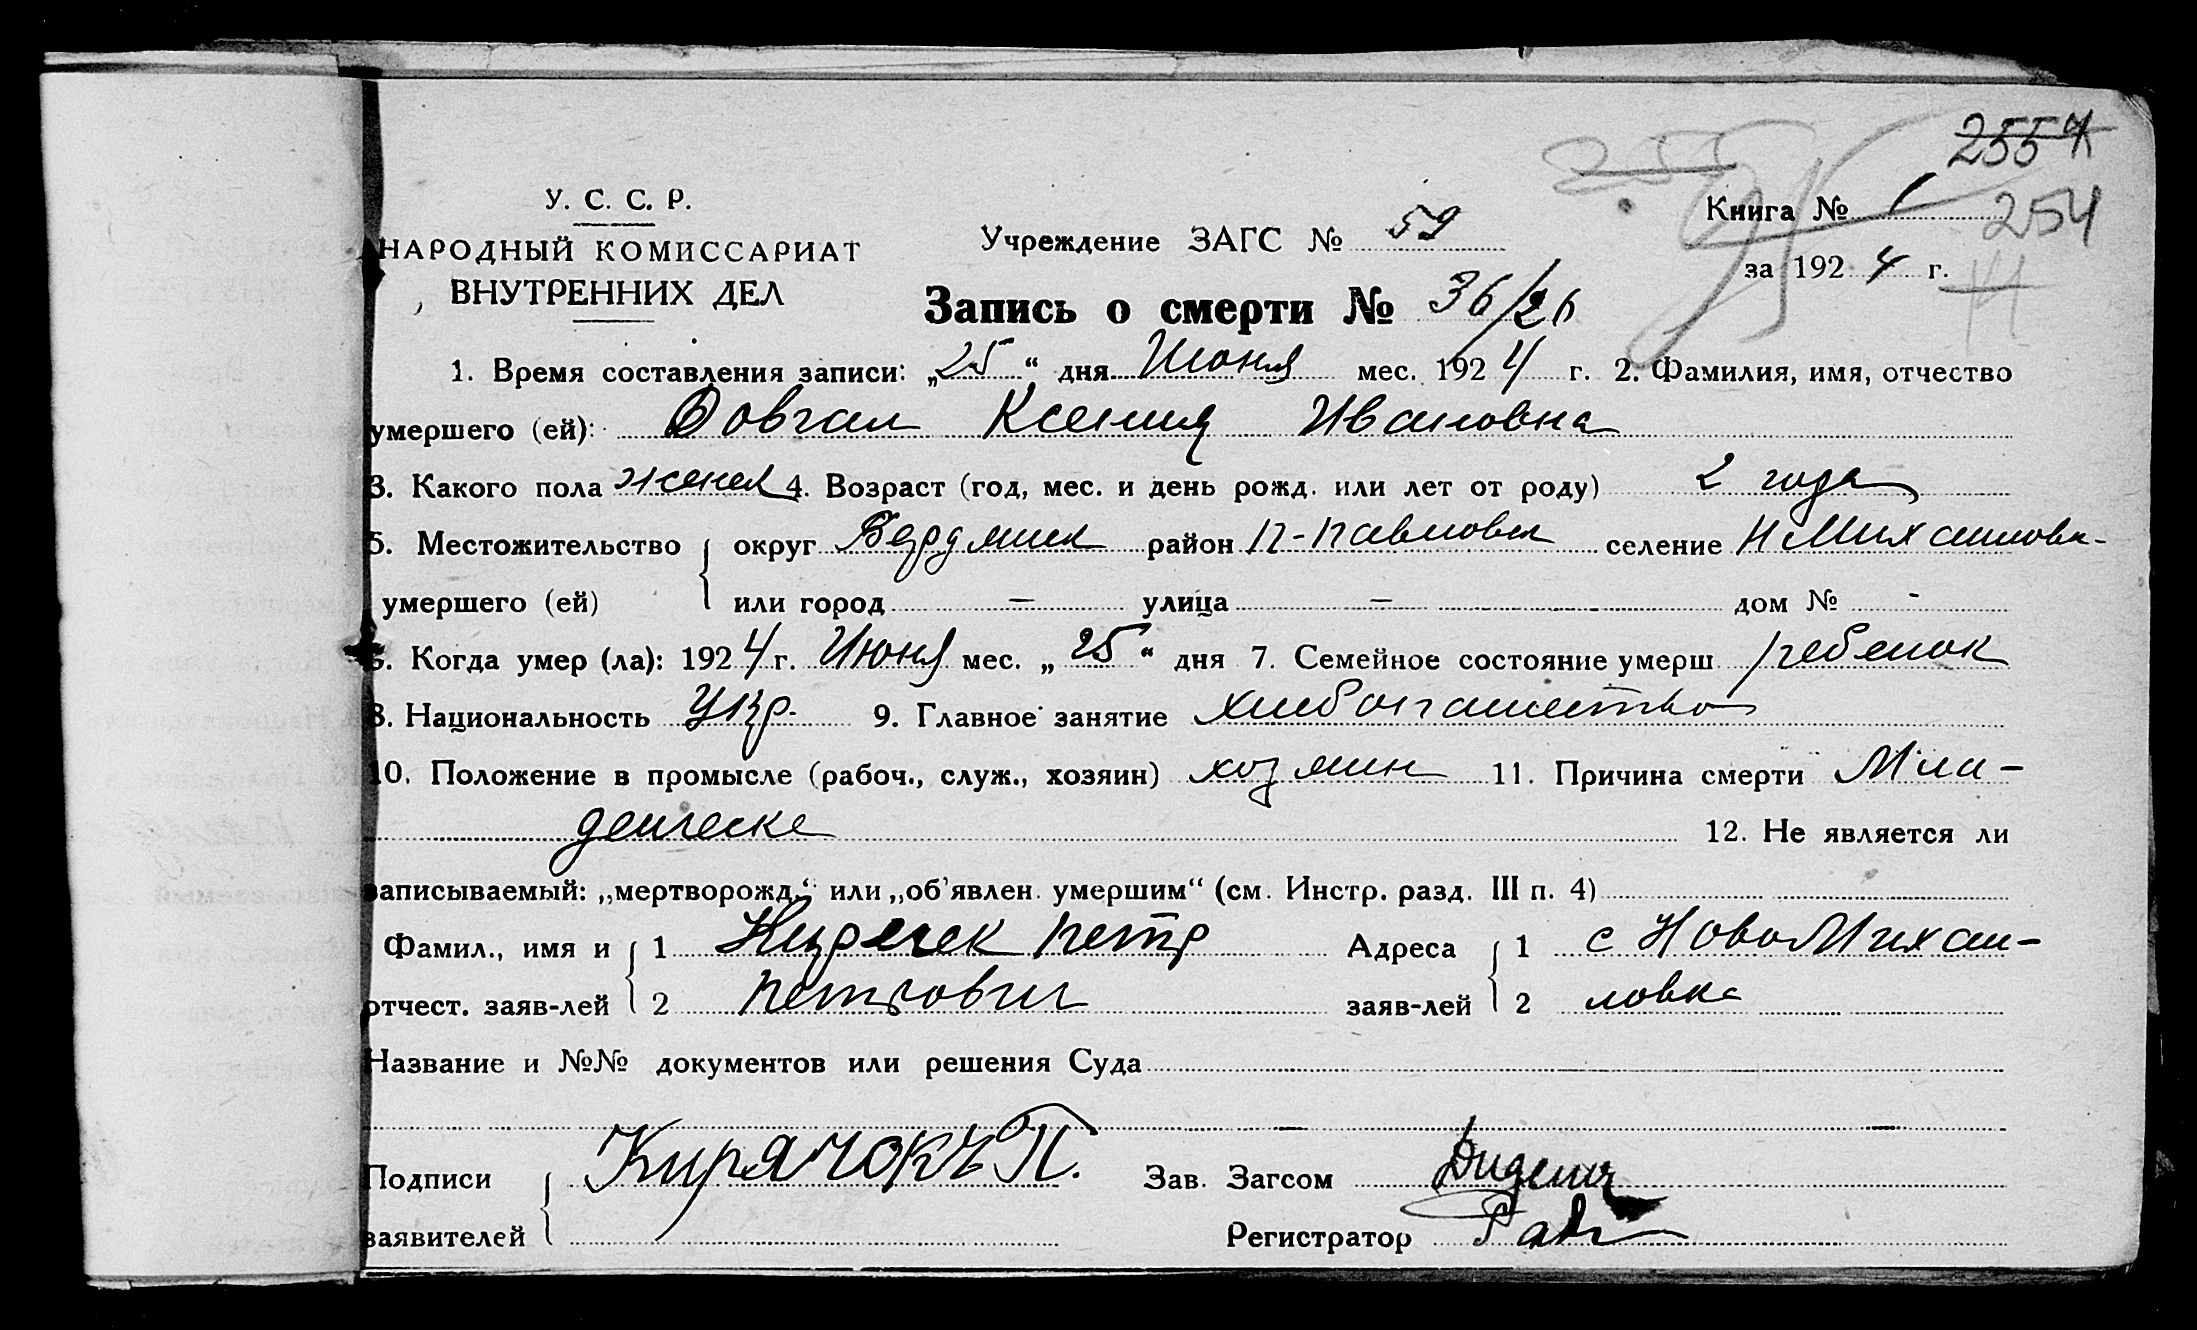 2554
255
У. С. С. Р.
Книга № 1
254
НАРОДНЫЙ КОМИССАРИАТ
Учреждение ЗАГС № 59
за 1924 г.
ВНУТРЕННИХ ДЕЛ
Запись о смерти № 36/26
1. Время составления записи: „25“ дня Июня мес. 1924 г. 2. Фамилия, имя, отчество
умершего (ей): Довгал Ксения Ивановна
3. Какого пола женск 4. Возраст (год, мес. и день рожд. или лет от роду) 2 года
5. Местожительство округ Бердянск район П-Павловск селение Н Михаиловк-
умершего (ей) или город — улица — дом № -
6. Когда умер (ла): 1924 г. Июня мес. „25“ дня 7. Семейное состояние умерш ребенок
8. Национальность Укр. 9. Главное занятие хлебопашество
10. Положение в промысле (рабоч., служ., хозяин) хозяин 11. Причина смерти Мла-
денческе
12. Не является ли
записываемый: „мертворожд.“ или „об'явлен. умершим“ (см. Инстр. разд. III п. 4)
Фамил., имя и 1 Петр Адреса 1 с НовоМихаи-
отчест. заяв-лей 2 Петрович заяв-лей 2 ловка
Название и №№ документов или решения Суда
Подписи Кирячокъ П. Зав. Загсом
заявителей Регистратор